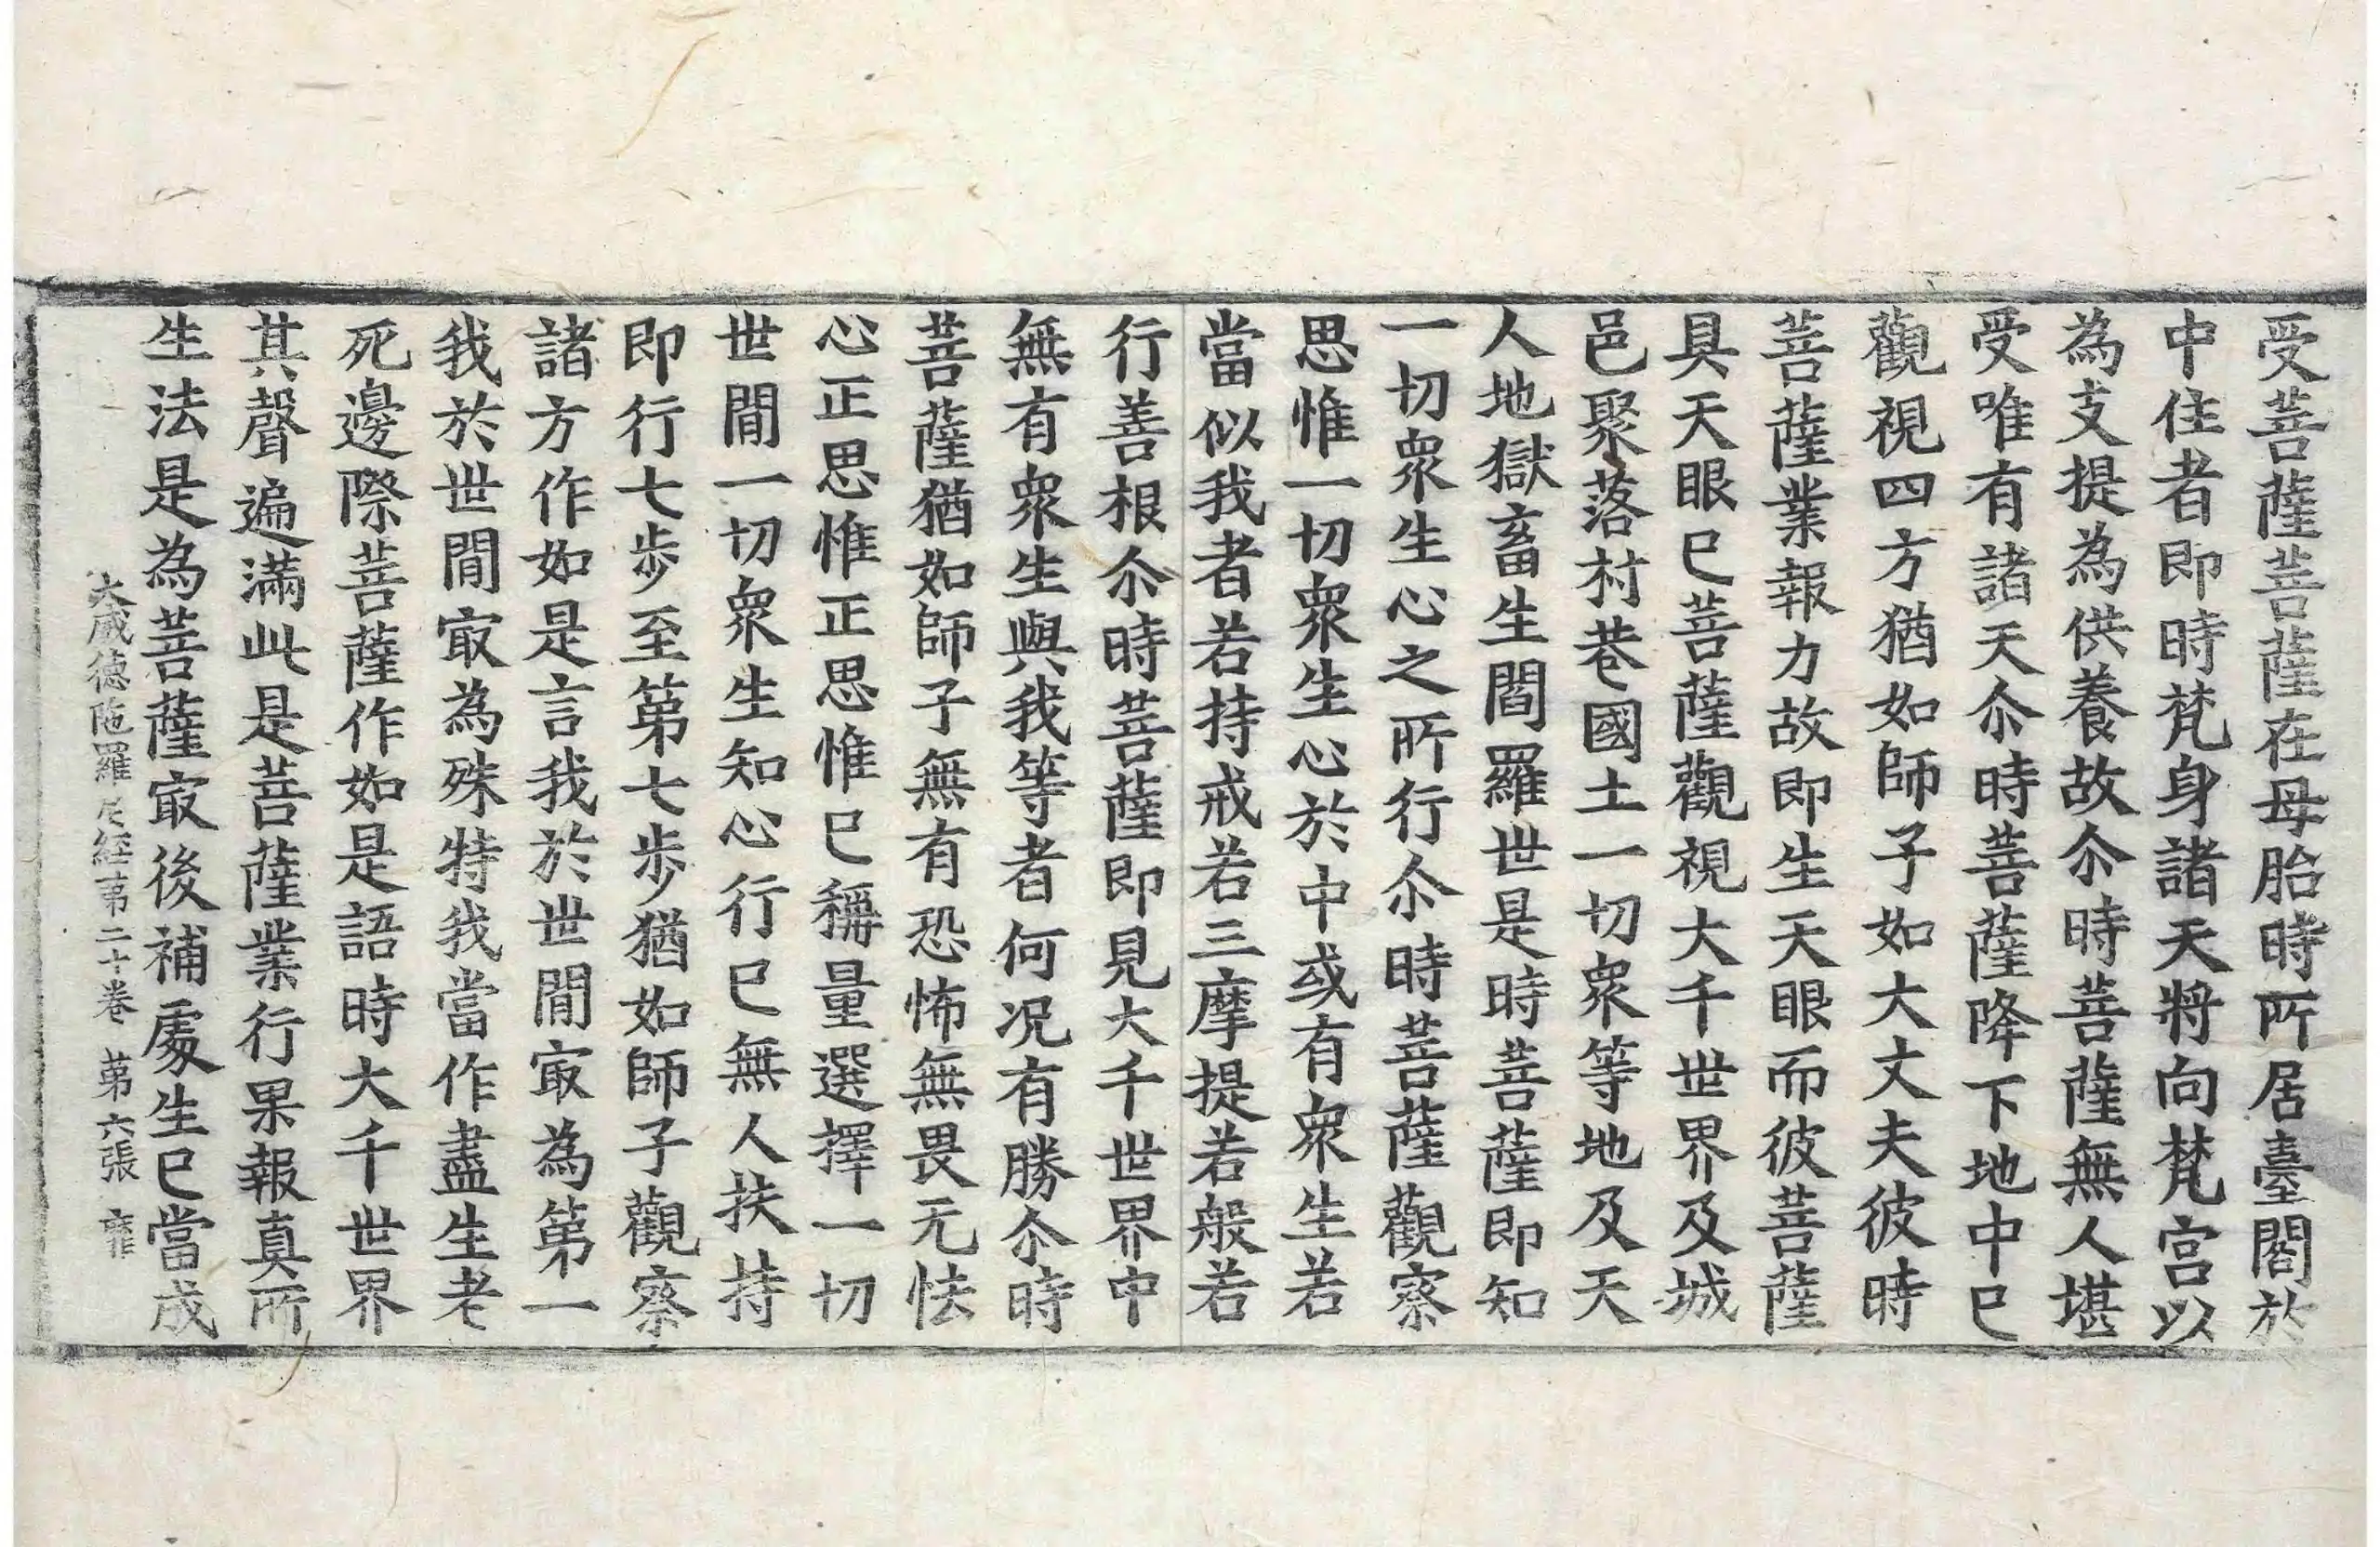 受菩薩菩薩在母胎時所居臺閣於
中住者即時梵身諸天將向梵宮以
為支提為供養故尒時菩薩無人堪
受唯有諸天尒時菩薩降下地中已
觀視四方猶如師子如大丈夫彼時
菩薩業報力故即生天眼而彼菩薩
具天眼已菩薩觀視大千世界及城
邑聚落村巷國土一切衆等地及天
人地獄畜生閻羅世是時菩薩即知
一切衆生心之所行尒時菩薩觀察
思惟一切衆生心於中或有衆生若
當似我者若持戒若三摩提若般若
行善根尒時菩薩即見大千世界中
無有衆生與我等者何况有勝尒時
菩薩猶如師子無有恐怖無畏无怯
心正思惟正思惟已稱量選擇一切
世間一切衆生知心行已無人扶持
即行七步至第七步猶如師子觀察
諸方作如是言我於世間㝡為第一
我於世間㝡為殊特我當作盡生老
死邊際菩薩作如是語時大千世界
其聲遍滿此是菩薩業行果報真所
生法是為菩薩㝡後補處生已當成
大威德陁羅尼經第二十卷 第六張 靡